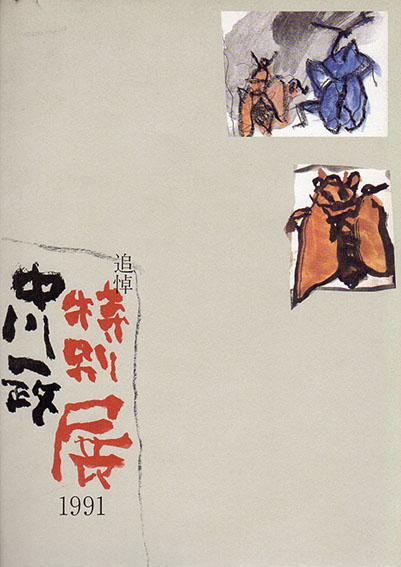 追悼
特別
展
中川一政
1991